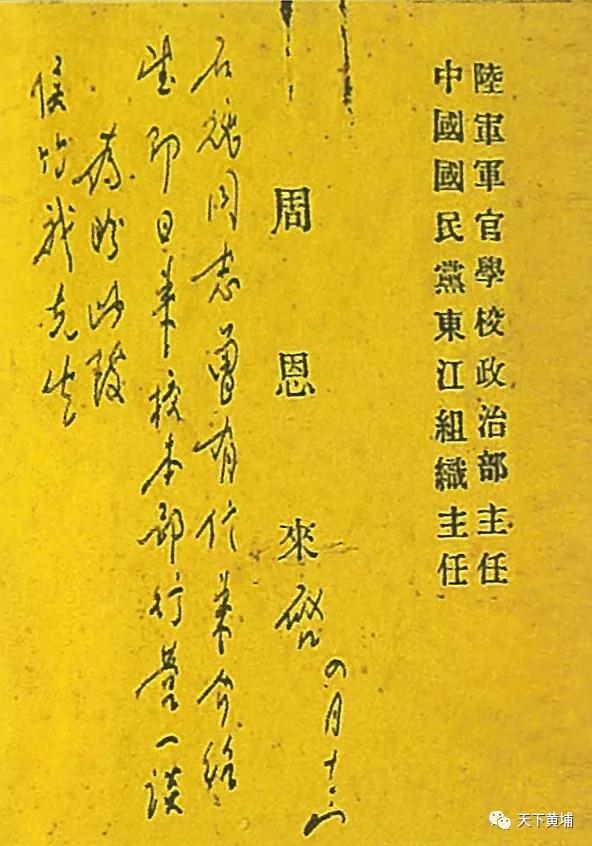 陸軍軍官學校政治部主任
中國國民黨東江組織主任
周恩來 啓 四月十
石魂同志曾有信来介绍
望即日来校本部行营一谈
為盼此致
侯竹我先生
天下黄埔